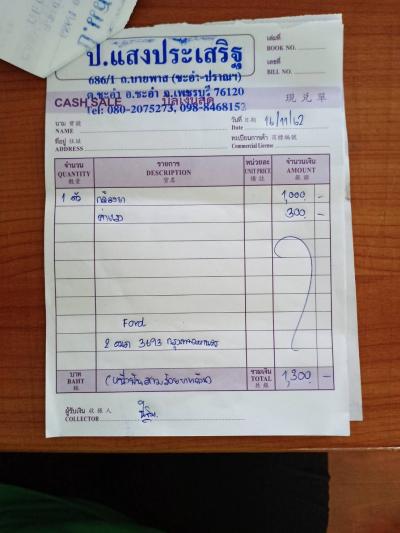 ป.แสงประเสริฐ
686/1 ถ.บายพาส (ชะอำ-ปราณฯ)
ต.ชะอำ อ.ชะอำ จ.เพชรบุรี 76120
Tel: 080-2075273, 098-8468153
เล่มที่
BOOK NO.
เลขที่
BILL NO.
CASH SALE บิลเงินสด 現兌單
นาม 寶號
NAME
วันที่ 日期 16/11/62
Date
ที่อยู่ 住址
ADDRESS
ทะเบียนการค้า 商標編號
Commercial License
จำนวน รายการ หน่วยละ จำนวนเงิน
QUANTITY DESCRIPTION UNIT PRICE AMOUNT
數量 貨名 備註 銀額
1 ตัว 1,000 -
ค่าแรง 300 -
Ford
2 ฒฌ 3693 กรุงเทพมหานคร
บาท (หนึ่งพันสามร้อยบาทถ้วน) รวมเงิน 1,300 -
BAHT TOTAL
銖 總銀
ผู้รับเงิน 收銀人
COLLECTOR